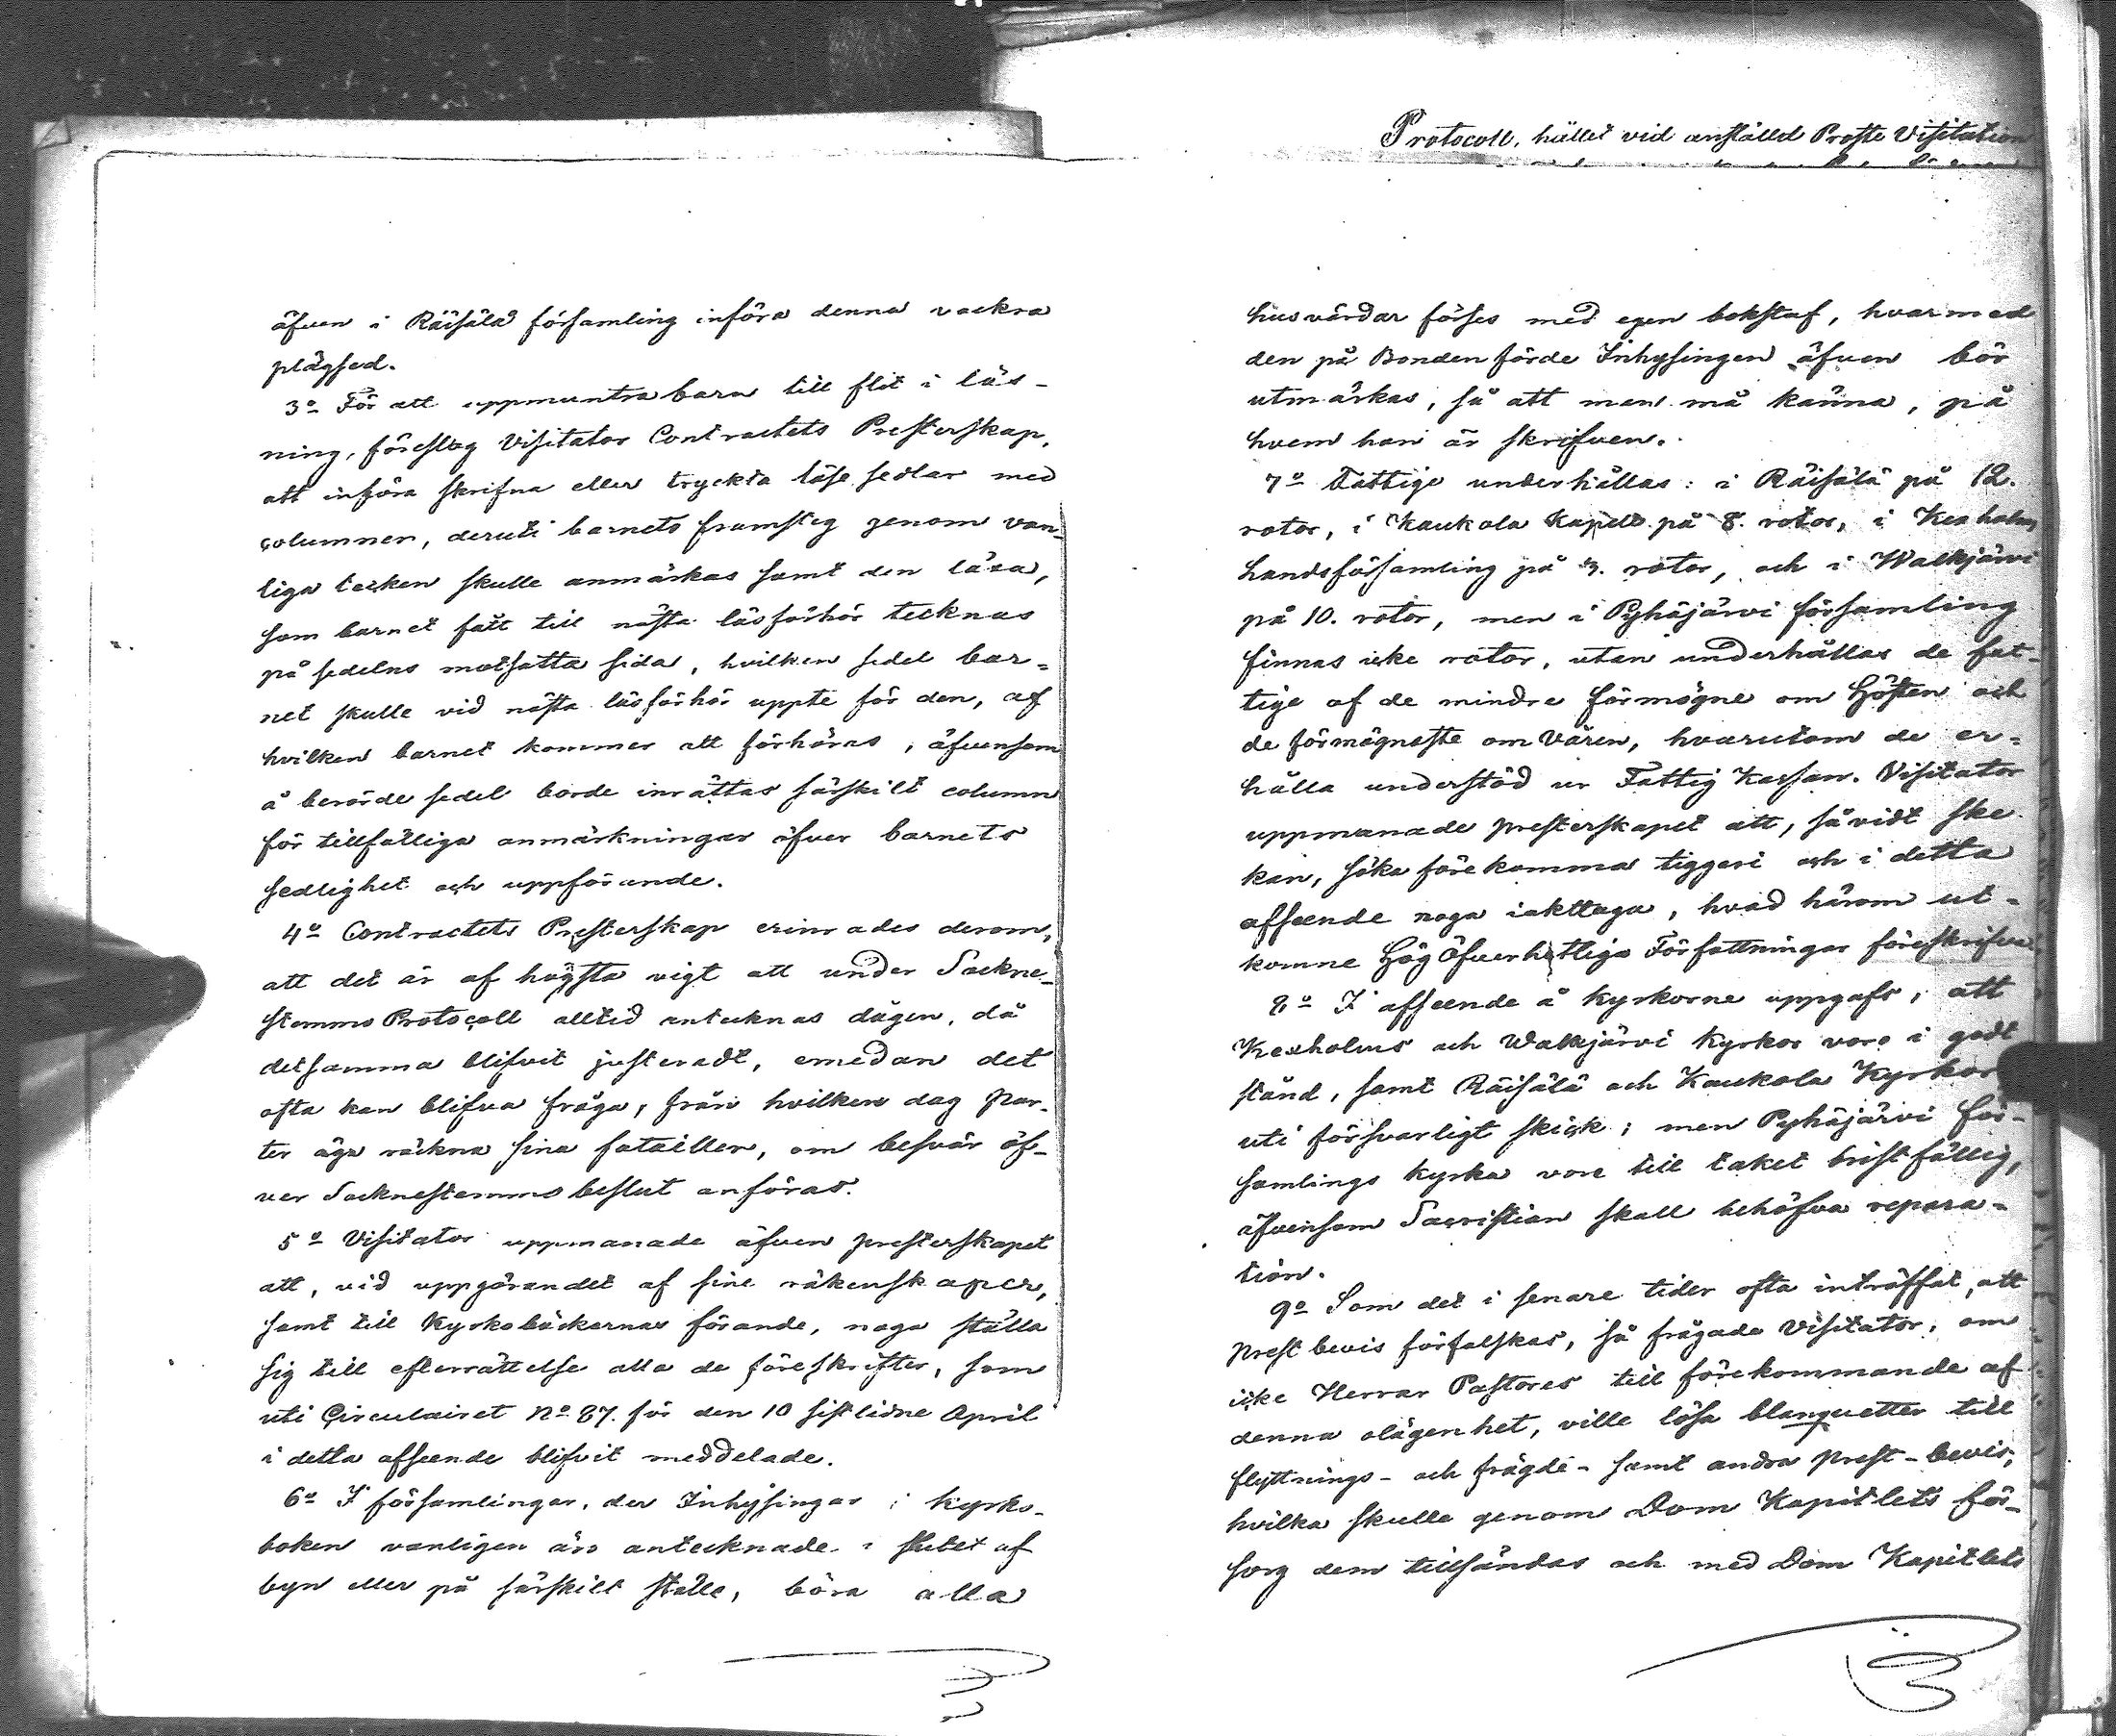 äfven i Räisälä församling införa denna vackra
plägsed.
3o För att uppmuntra barn till flit i läs-
ning, föreslog Visitator Contractets Presterskap,
att införa skrifna eller tryckta läse sedlar med
columner, deruti barnets framsteg genom van-
liga tecken skulle anmärkas samt den läxa,
som barnet fått till nästa läsförhör tecknas
på sedelns motsatta sida, hvilken sedel bar-
net skulle vid nästa läsförhör uppte för den, af
hvilken barnet kommer att förhöras, äfvensom
å berörde sedel borde inrättas särskilt column
för tillfälliga anmärkningar öfver barnets
sedlighet och uppförande.
4o Contractets Presterskap erinrades derom,
att det är af högsta vigt att under Sockne-
stemmo Protocoll alltid antecknas dagen, då
detsamma blifvit justeradt, emedan det
ofta kan blifva fråga, från hvilken dag Par-
ter äga räckna sina fatailler, om besvär öf-
ver Socknestemmo beslut anföras.
5o Visitator uppmanade äfven presterskapet
att, vid uppgörandet af sine räkenskaper,
samt till Kyrkoböckernas förande, noga ställa
sig till efterrättelse alla de föreskrifter, som
uti Circulairet No 87. för den 10 sistlidne April
i detta afseende blifvit meddelade.
6o I församlingar, der Inhysingar i kyrko-
boken vanligen äro antecknade i slutet af
byn eller på särskilt ställe, böra alla
Protocoll, hållet vid anställd Proste Visitation
husvärdar förses med egen bokstaf, hvarmed
den på Bonden förde Inhysingen äfven bör
utmärkas, så att man må känna, på
hvem han är skrifven.
7o Fattige underhållas: i Räisälä på 12.
rotor, i Kaukola Kapell på 8. rotor, i Kexholms
Landsförsamling på 3. rotor, och i Walkjärvi
på 10. rotor, men i Pyhäjärvi församling
finnas icke rotor, utan underhållas de fat-
tige af de mindre förmögne om Hösten och
de förmögnaste om Våren, hvarutom de er-
hålla understöd ur Fattig Kassan. Visitator
uppmanade presterskapet att, såvidt ske
kan, söka förekomma tiggeri och i detta
afseende noga iakttaga, hvad härom ut-
komne Hög Öfverhetliga Författningar föreskrifva.
8o I afseende å kyrkorne uppgafs, att
Kexholms och Walkjärvi Kyrkor voro i godt
stånd, samt Räisälä och Kaukola Kyrkor
uti försvarligt skick; men Pyhäjärvi för-
samlings kyrka vore till taket bristfällig,
äfvensom Sacristian skall behöfva repara-
tion.
9o Som det i senare tider ofta inträffat, att
prest bevis förfalskas, så frågade Visitator, om
icke Herrar Pastores till förekommande af
denna olägenhet, ville lösa blanquetter till
flyttnings- och frägde- samt andra prest-bevis,
hvilka skulle genom Dom Kapitlets för-
sorg dem tillsändas och med Dom Kapitlets